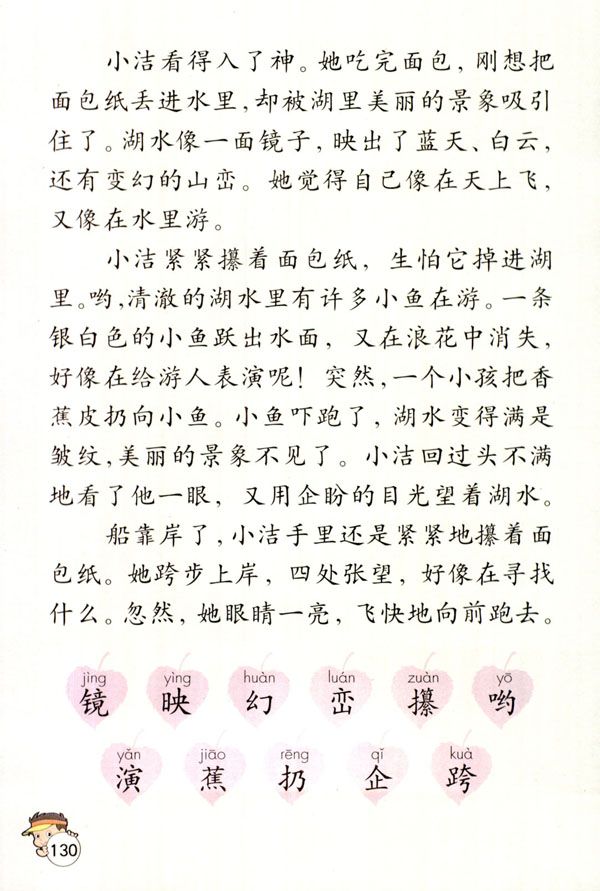 小洁看得入了神。她吃完面包，刚想把
面包纸丢进水里，却被湖里美丽的景象吸引
住了。湖水像一面镜子，映出了蓝天、白云，
还有变幻的山峦。她觉得自己像在天上飞，
又像在水里游。
小洁紧紧攥着面包纸，生怕它掉进湖
里。哟，清澈的湖水里有许多小鱼在游。一条
银白色的小鱼跃出水面，又在浪花中消失，
好像在给游人表演呢！突然，一个小孩把香
蕉皮扔向小鱼。小鱼吓跑了，湖水变得满是
皱纹，美丽的景象不见了。小洁回过头不满
地看了他一眼，又用企盼的目光望着湖水。
船靠岸了，小洁手里还是紧紧地攥着面
包纸。她跨步上岸，四处张望，好像在寻找
什么。忽然，她眼睛一亮，飞快地向前跑去。
jìng yìng huàn luán zuàn yō
镜 映 幻 峦 攥 哟
yǎn jiāo rēng qǐ kuà
演 蕉 扔 企 跨
130